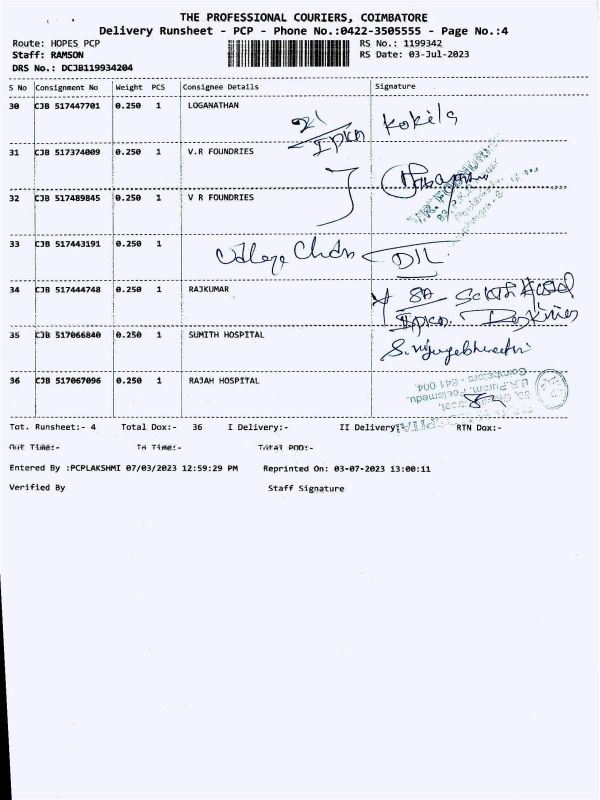 THE PROFESSIONAL COURIERS, COIMBATORE
Delivery Runsheet - PCP - Phone No.:0422-3505555 - Page No.:4
Route: HOPES PCP RS No.: 1199342
Staff: RAMSON RS Date: 03-Jul-2023
DRS No.: DCJB119934204
S No Consignment No Weight PCS Consignee Details Signature
30 CJB 517447701 0.250 1 LOGANATHAN
Kokila
31 CJB 517374009 0.250 1 V.R FOUNDRIES
32 CJB 517489845 0.250 1 V R FOUNDRIES
33 CJB 517443191 0.250 1
DIL
34 CJB 517444748 0.250 1 RAJKUMAR
35 CJB 517066840 0.250 1 SUMITH HOSPITAL
36 CJB 517067096 0.250 1 RAJAH HOSPITAL
Coimbatore - 641 004.
Tot. Runsheet:- 4 Total Dox:- 36 I Delivery:- II Delivery:- RTN Dox:-
Out Time:- In Time:- Total POD:-
Entered By :PCPLAKSHMI 07/03/2023 12:59:29 PM Reprinted On: 03-07-2023 13:00:11
Verified By Staff Signature